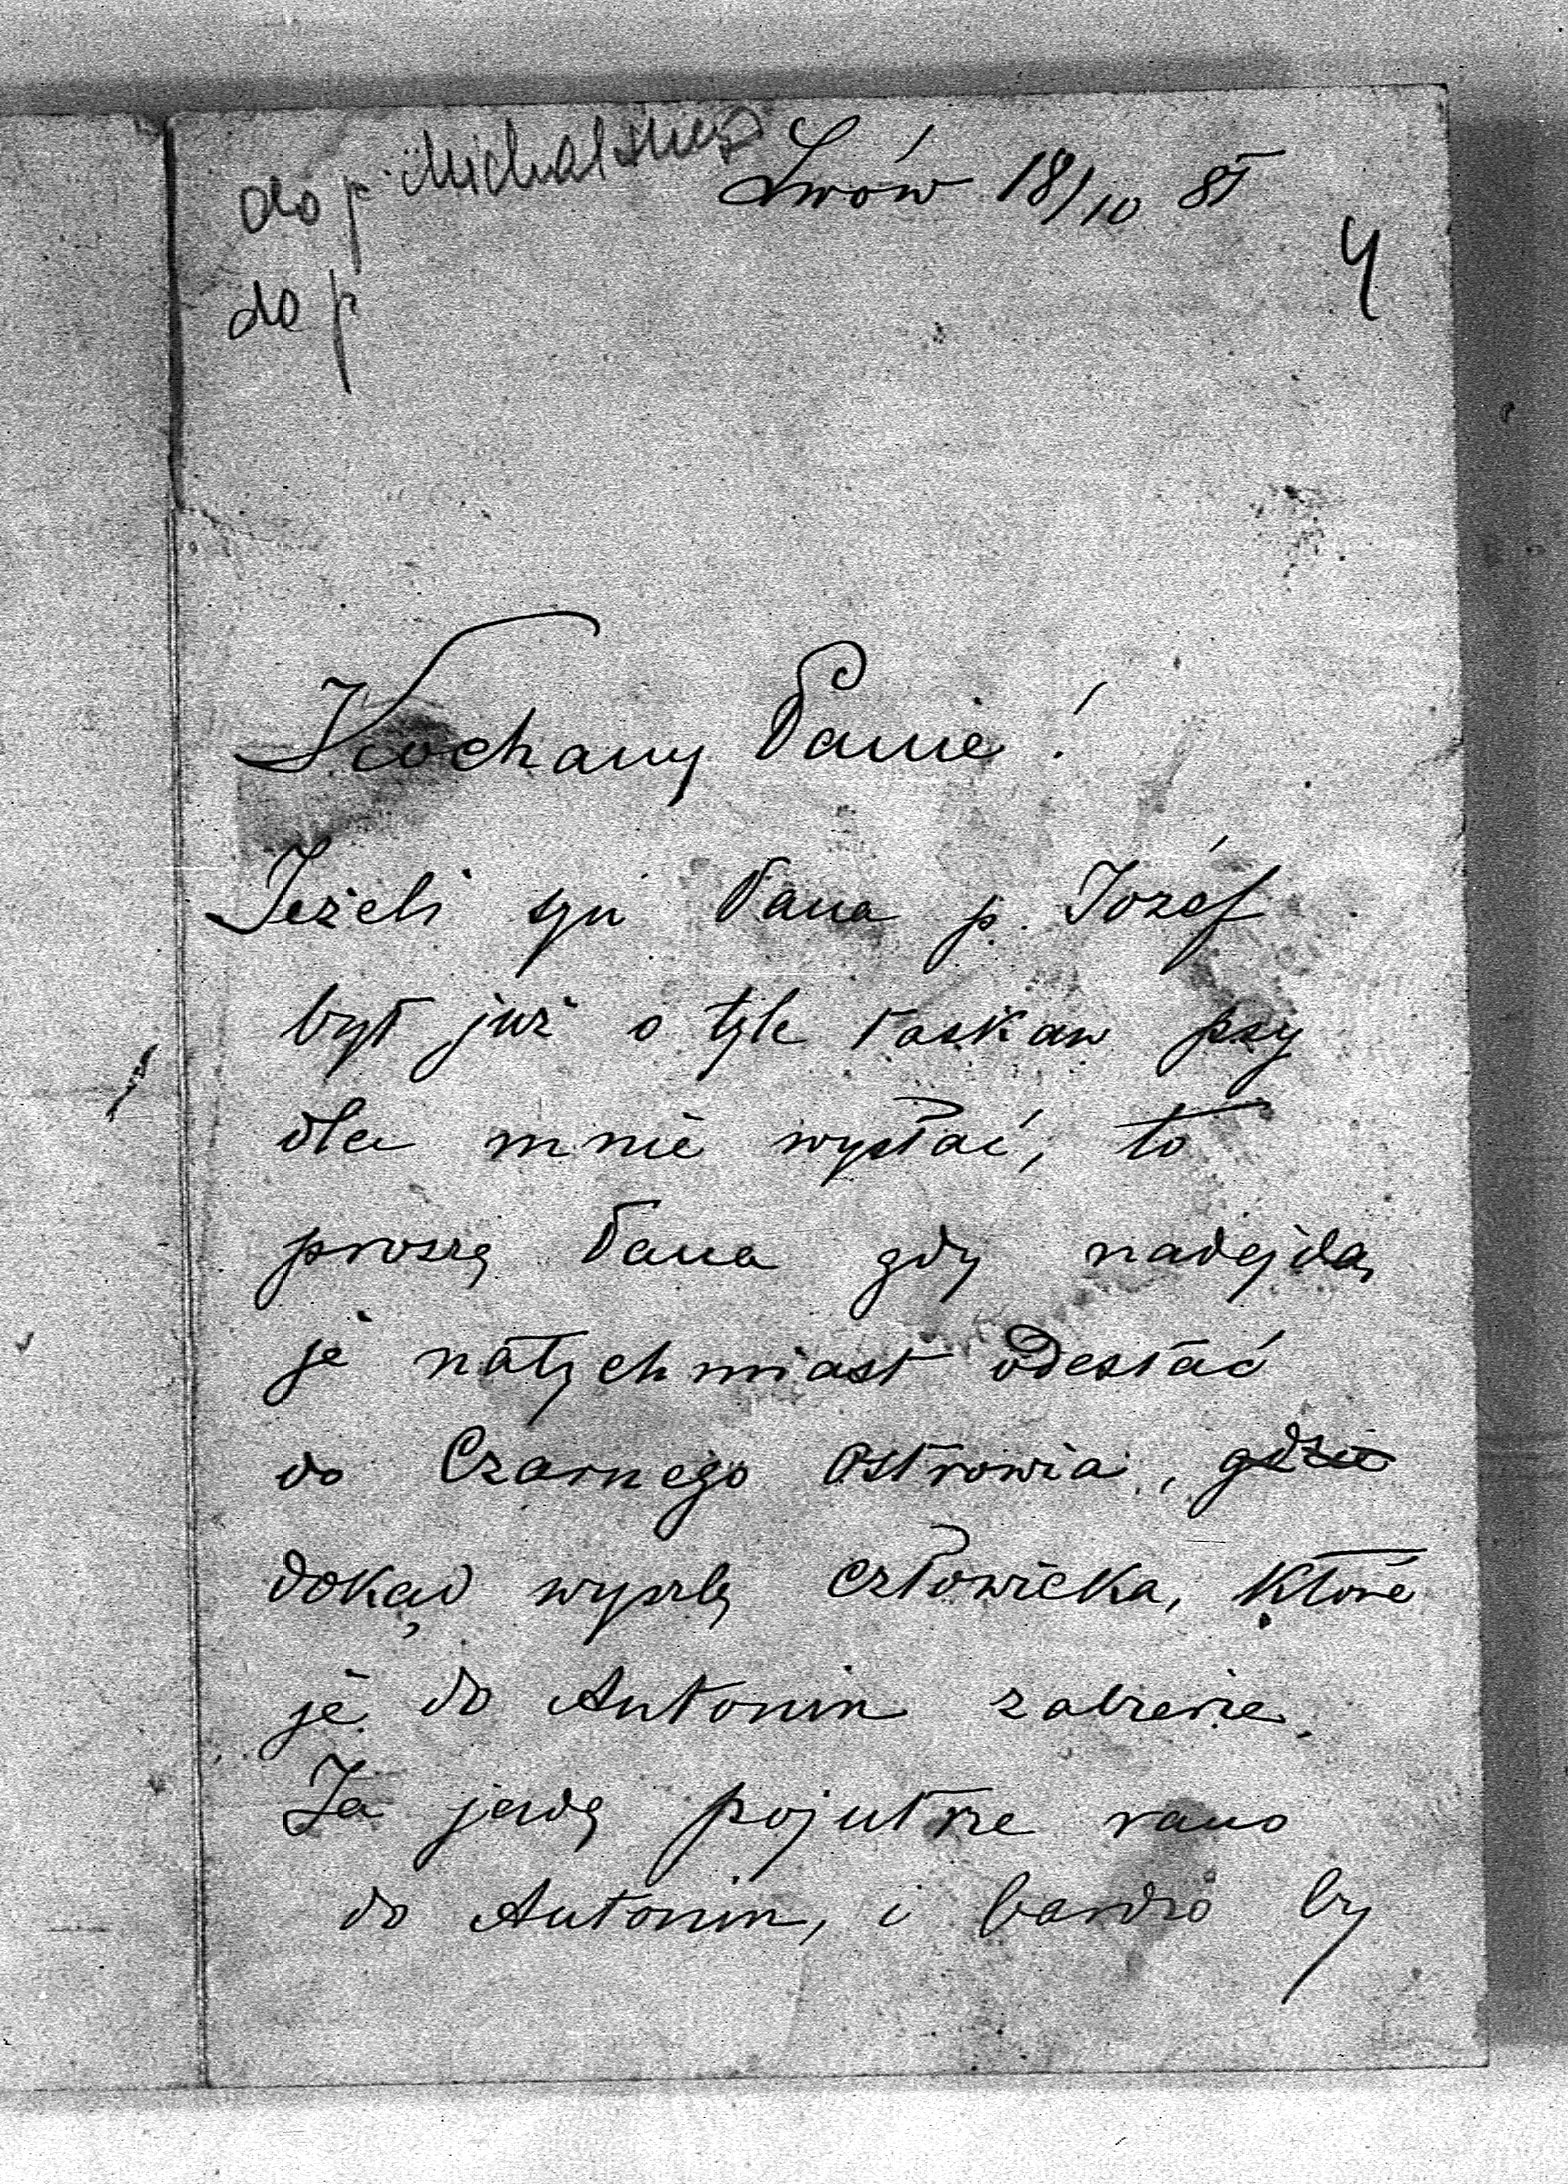 do p. Michalskiego
Lwów 18/10 87
4
do p
Kochany Panie!
Jeżeli syn Pana p. Józef
był już o tyle łaskaw psy
dla mnie wysłać, to
proszę Pana gdy nadejdą
je natychmiast odesłać
do Czarnego Ostrowia, gdzie
dokąd wyszlę człowieka, które
je do Antonin zabierze.
Ja jadę pojutrze rano
do Antonin, i bardzo by